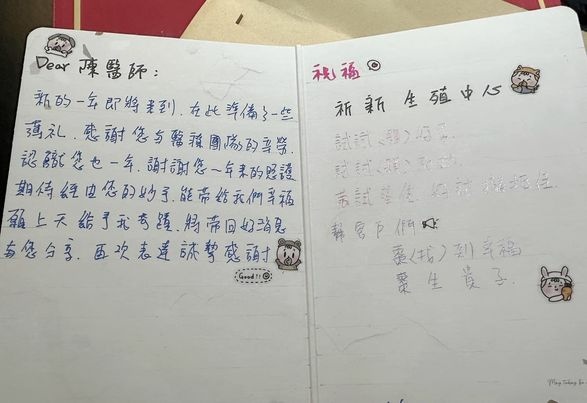 Dear 陳醫師:
新的一年即將來到,在此準備了一些
薄礼,感謝您与醫護團隊的辛勞
認識您也一年,謝謝您一年來的照護
期待經由您的妙手,能帶給我們幸福
願上天給予我奇蹟,將帶回好消息
与您分享,再次表達誠摯感謝
Good!!
祝福
祈新生殖中心
試試(親)好
試試(親)
幫客戶們
棗(找)到幸福
棗生貴子.